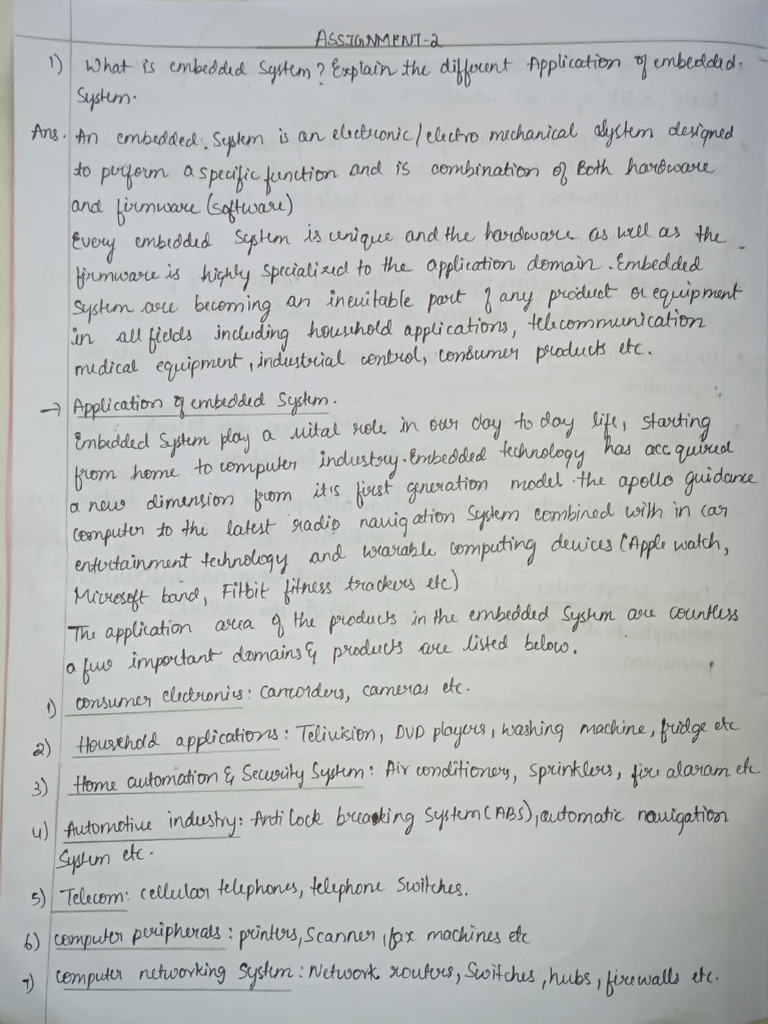 ASSIGNMENT-2
1) What is embedded System? Explain the different Application of embedded.
System.
Ans. An embedded. System is an electronic/electro mechanical System designed
to perform a specific function and is combination of Both hardware
and firmware (software)
Every embedded System is unique and the hardware as well as the
firmware is highly specialized to the application domain. Embedded
System are becoming an inevitable part of any product or equipment
in all fields including household applications, telecommunication
medical equipment, industrial control, consumer products etc.
→ Application of embedded System.
Embedded System play a vital role in our day to day life, starting
from home to computer industry. Embedded technology has acc quired
a new dimension from it's first generation model the apollo guidance
computer to the latest radio navigation System combined with in car
entertainment technology and wearable computing devices (Apple watch,
Microsoft band, Fitbit fitness trackers etc)
The application area of the products in the embedded System are countless
a few important domains & products are listed below.
1) consumer electronics: Camcorders, cameras etc.
2) Household applications: Telivision, DVD players, washing machine, fridge etc
3) Home automation & Security System: Air conditioners, Sprinklers, fire alaram etc
4) Automotive industry: Anti lock breaking System (ABS), automatic navigation
System etc.
5) Telecom: cellular telephones, telephone Switches.
6) computer peripherals: printers, Scanner, fax machines etc
7) computer networking System: Network routers, Switches, hubs, firewalls etc.